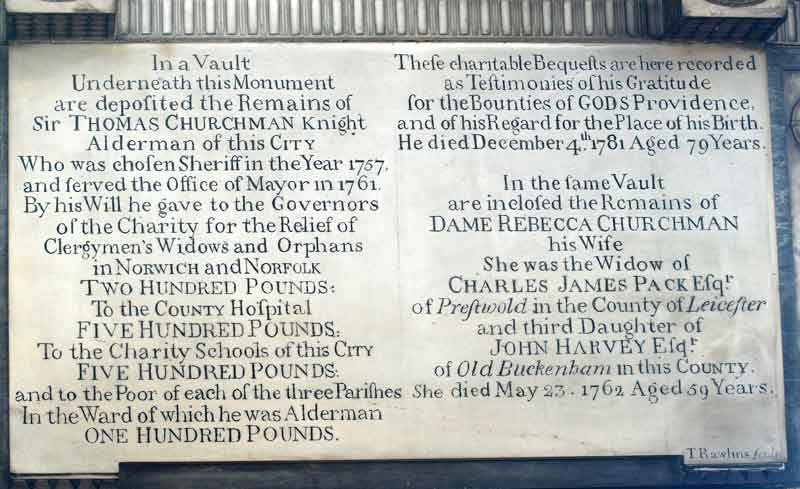 In a Vault
Underneath this Monument
are depoſited the Remains of
Sir THOMAS CHURCHMAN Knight
Alderman of this CITY
Who was choſen Sheriff in the Year 1757,
and ſerved the Office of Mayor in 1761.
By his Will he gave to the Governors
of the Charity for the Relief of
Clergymen's Widows and Orphans
in NORWICH and NORFOLK
TWO HUNDRED POUNDS:
To the COUNTY Hoſpital
FIVE HUNDRED POUNDS:
To the Charity Schools of this CITY
FIVE HUNDRED POUNDS:
and to the Poor of each of the three Pariſhes
In the Ward of which he was Alderman
ONE HUNDRED POUNDS.
Theſe charitable Bequeſts are here recorded
as Teſtimonies of his Gratitude
for the Bounties of GODS Providence,
and of his Regard for the Place of his Birth.
He died December 4.th 1781 Aged 79 Years.
In the ſame Vault
are incloſed the Remains of
DAME REBECCA CHURCHMAN
his Wife
She was the Widow of
CHARLES JAMES PACK Eſqr.
of Preſtwold in the County of Leiceſter
and third Daughter of
JOHN HARVEY Eſqr.
of Old Buckenham in this COUNTY.
She died May 23. 1762 Aged 59 Years.
T. Rawlins ſculpt